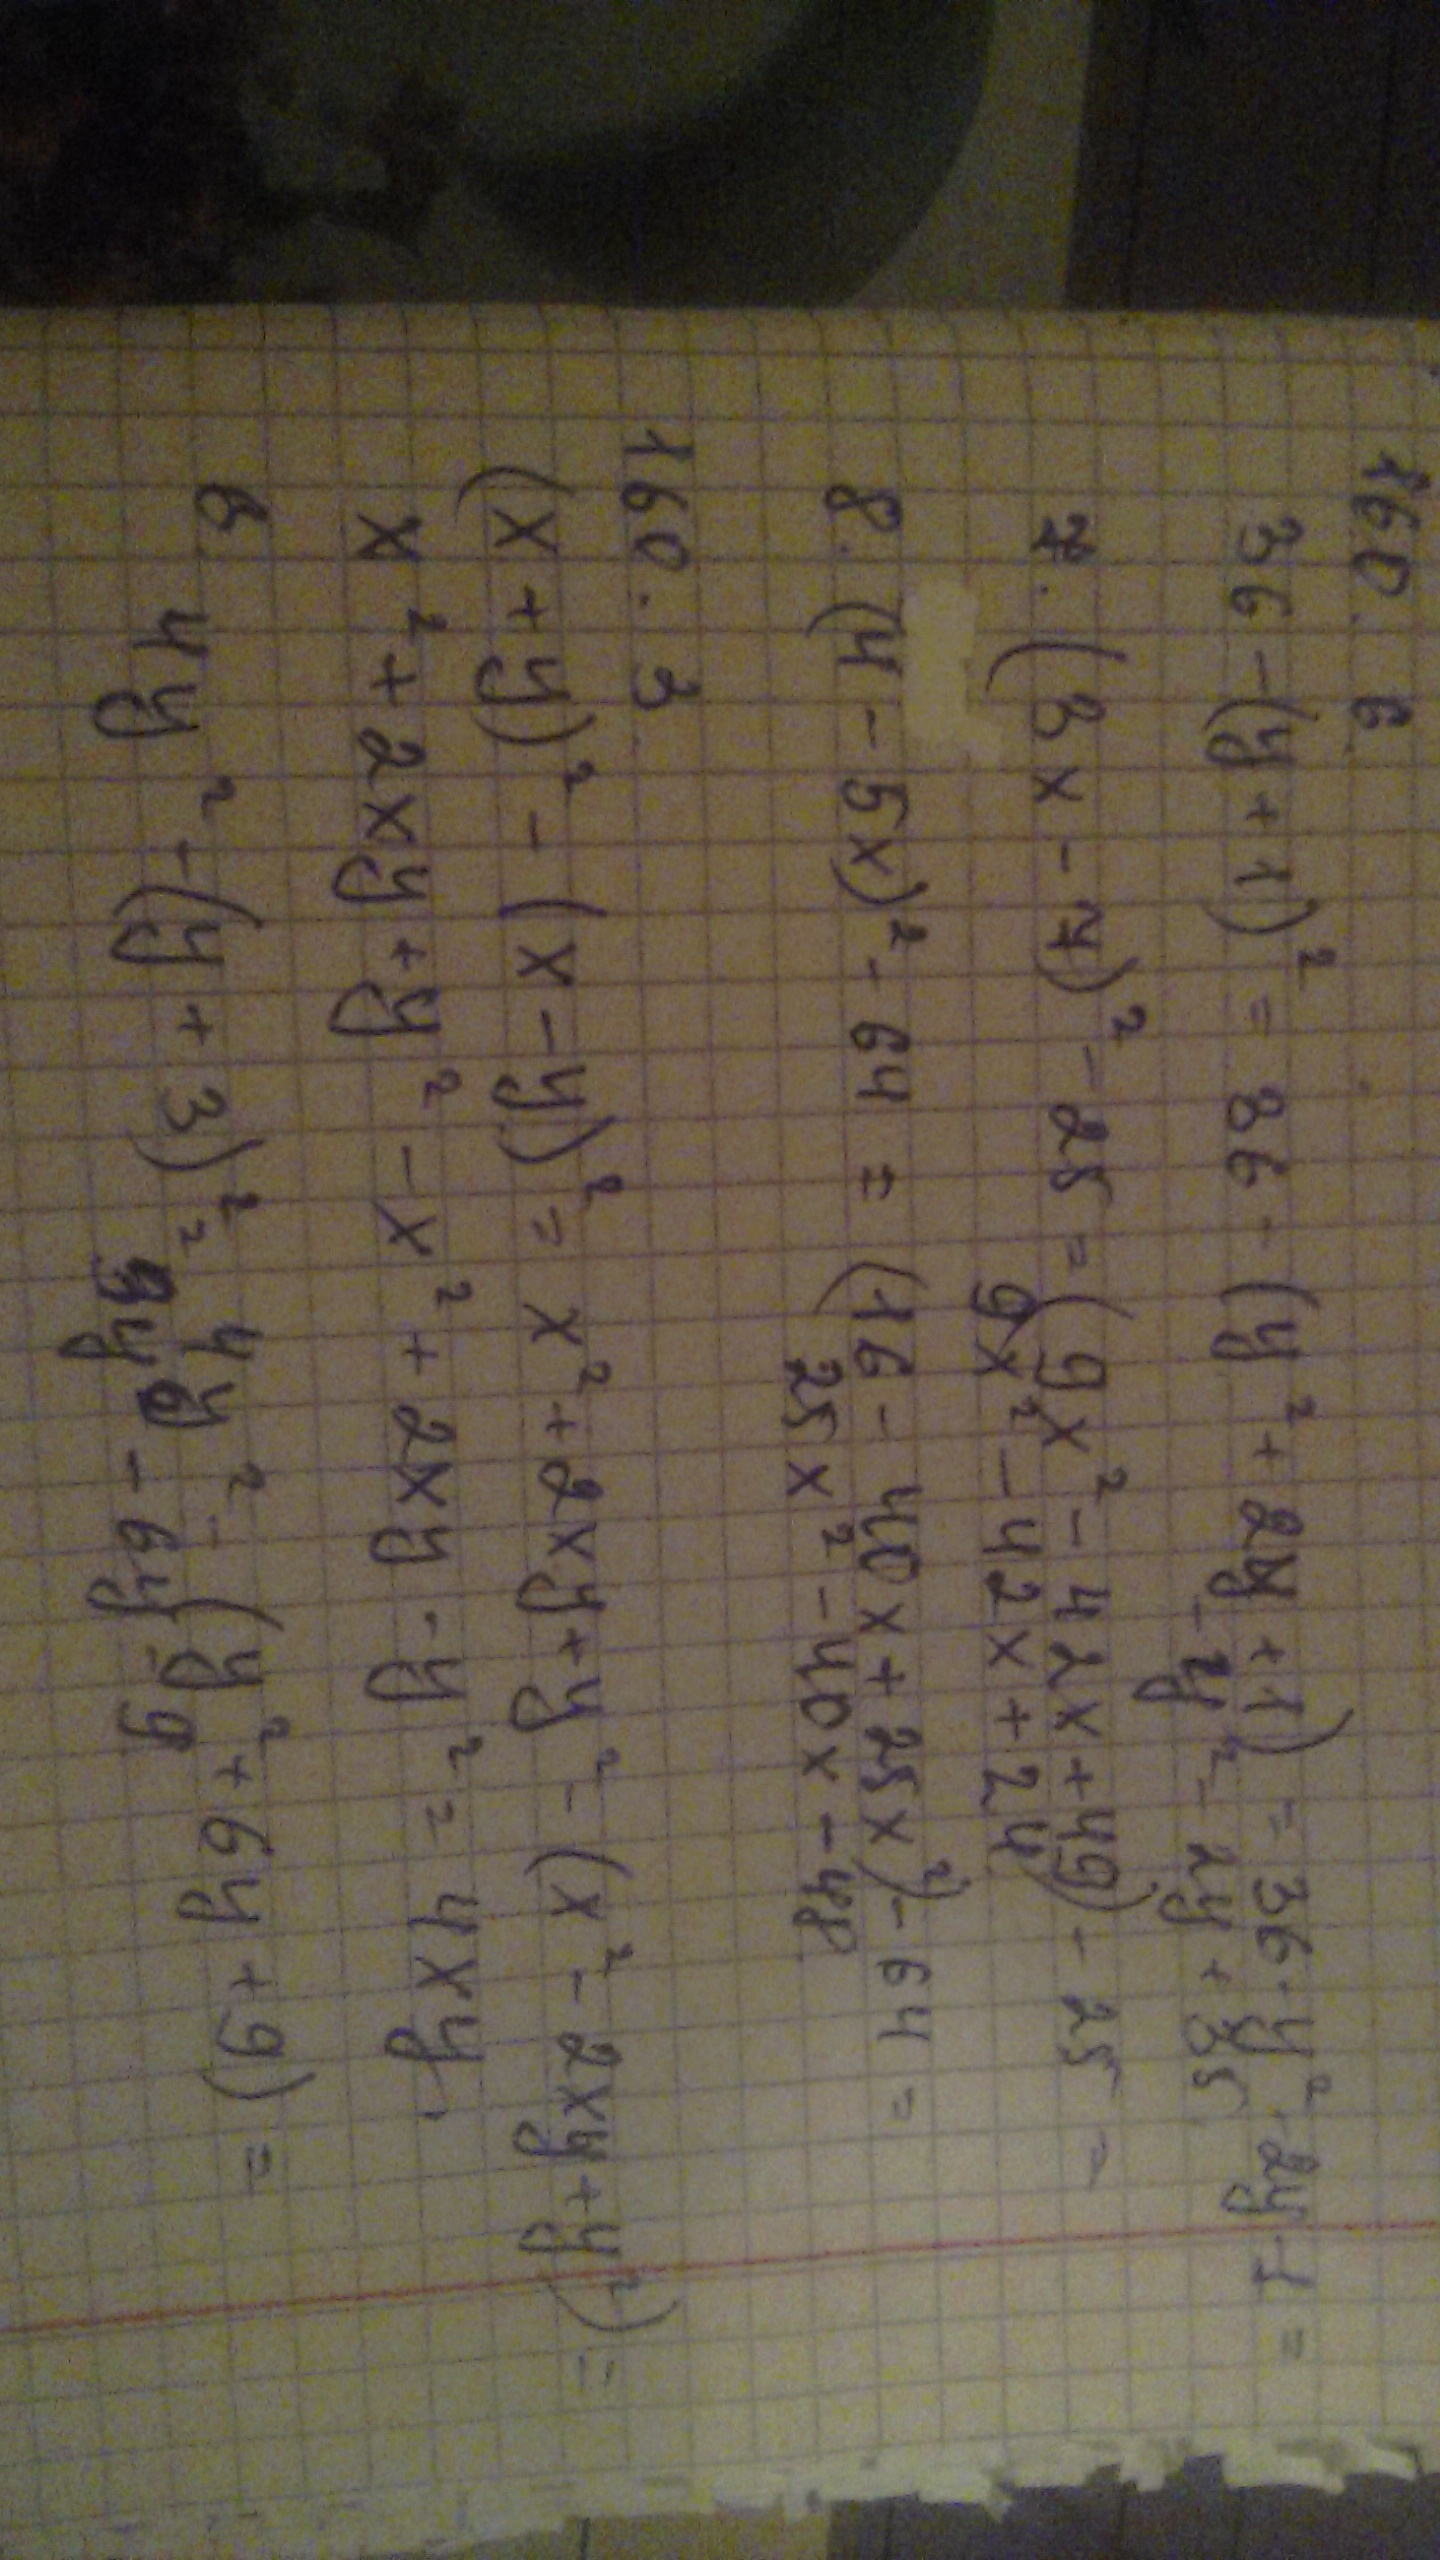 160. 6.
36 - (y + 1)² = 36 - (y² + 2y + 1) = 36 - y² - 2y - 1 =
- y² - 2y + 35
7. (3x - 7)² - 25 = (9x² - 42x + 49) - 25 =
9x² - 42x + 24
8. (4 - 5x)² - 64 = (16 - 40x + 25x²) - 64 =
25x² - 40x - 48
160. 3.
(x + y)² - (x - y)² = x² + 2xy + y² - (x² - 2xy + y²) =
x² + 2xy + y² - x² + 2xy - y² = 4xy.
6. 4y² - (y + 3)² = 4y² - (y² + 6y + 9) =
- 6y - 9